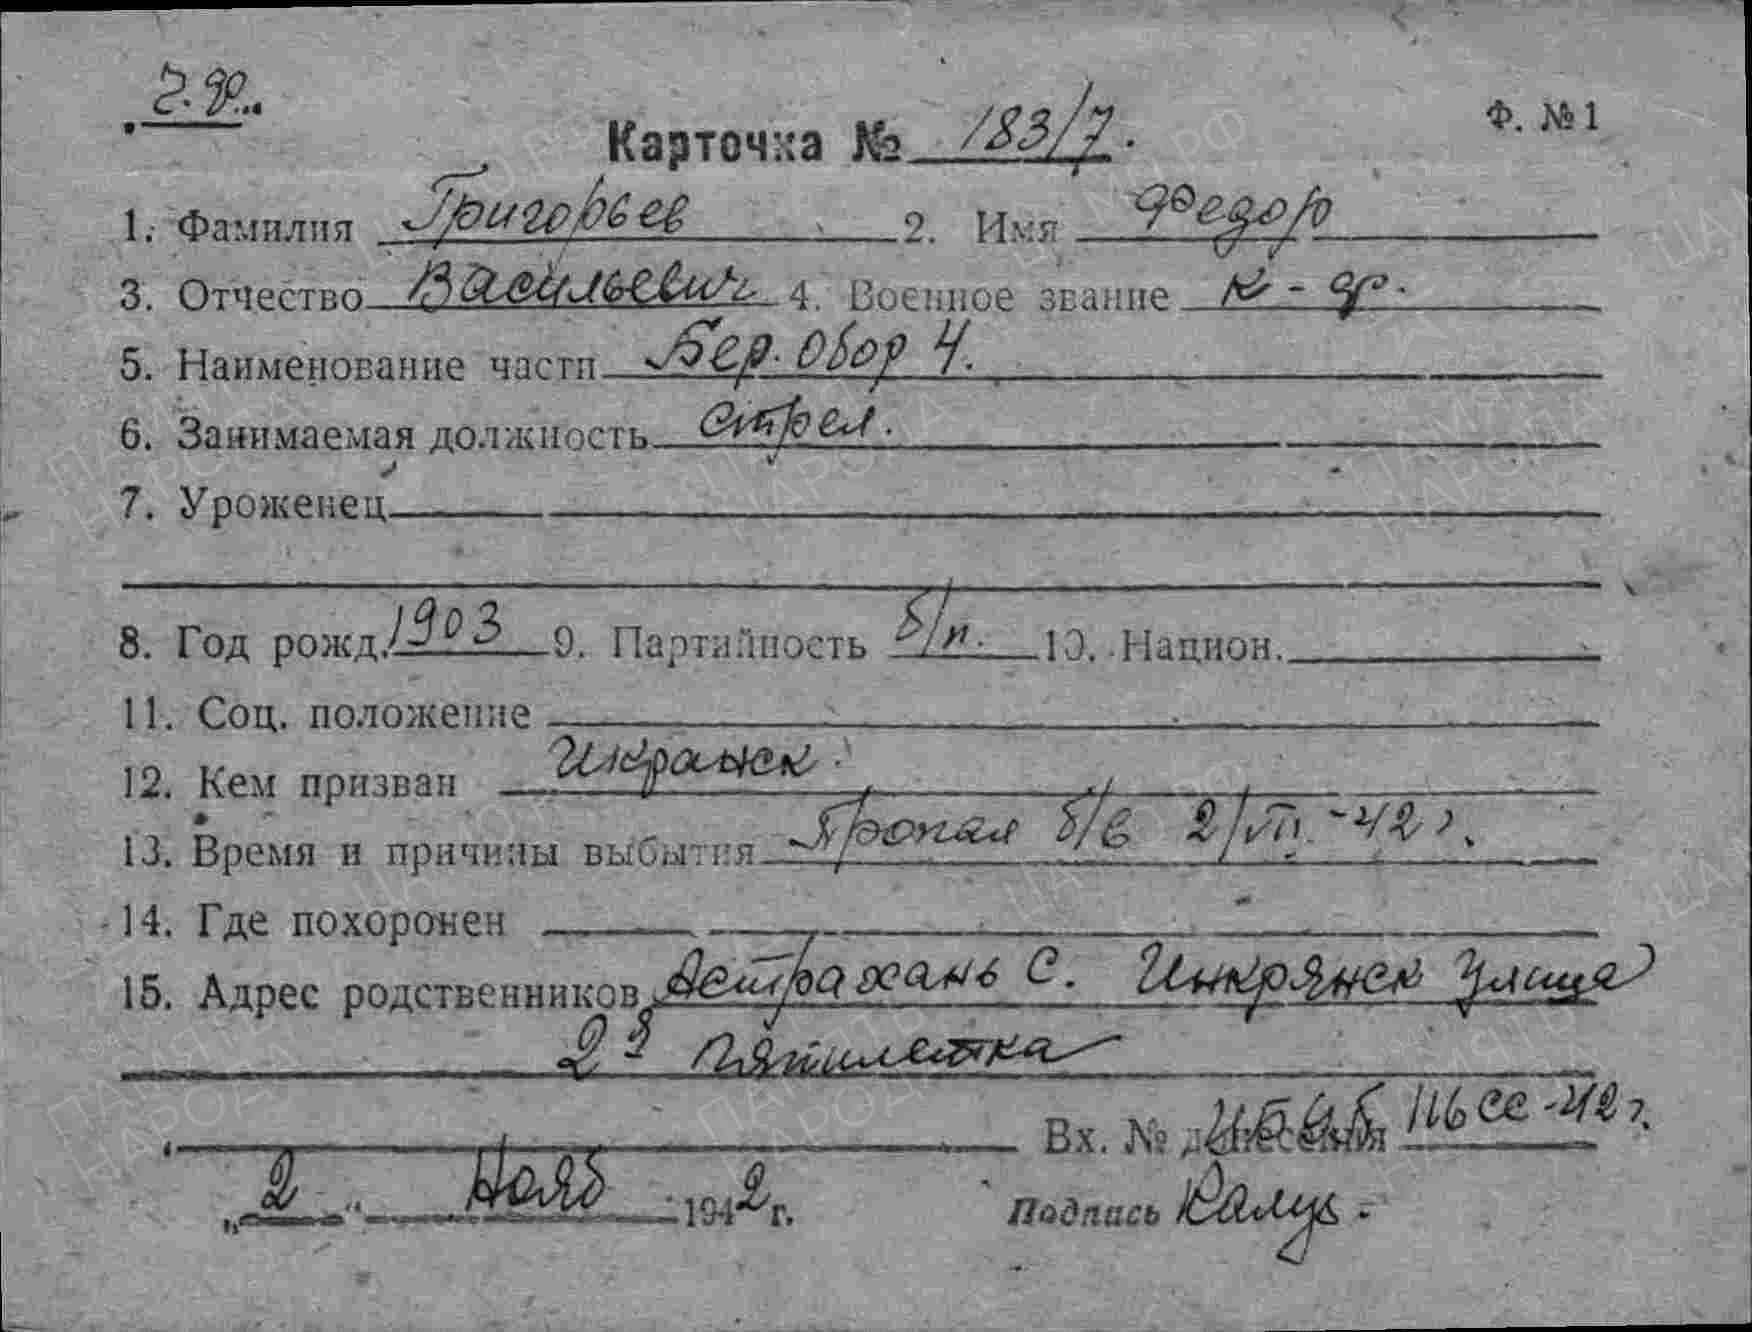 Ф. №1
Карточка № 183/7.
1. Фамилия Григорьев 2. Имя Федор
3. Отчество Васильевич 4. Военное звание к-ф.
5. Наименование части Бер. обор 4.
6. Занимаемая должность стрел.
7. Уроженец
8. Год рожд. 1903 9. Партийность б/п. 10. Национ.
11. Соц. положение
12. Кем призван Икрянск.
13. Время и причины выбытия Пропал б/в 2/VII-42 г.
14. Где похоронен
15. Адрес родственников Астрахань с. Инкрянск улица
2я пятилетка
Вх. № донесения 42 г.
„2“ Нояб 1942 г. Подпись